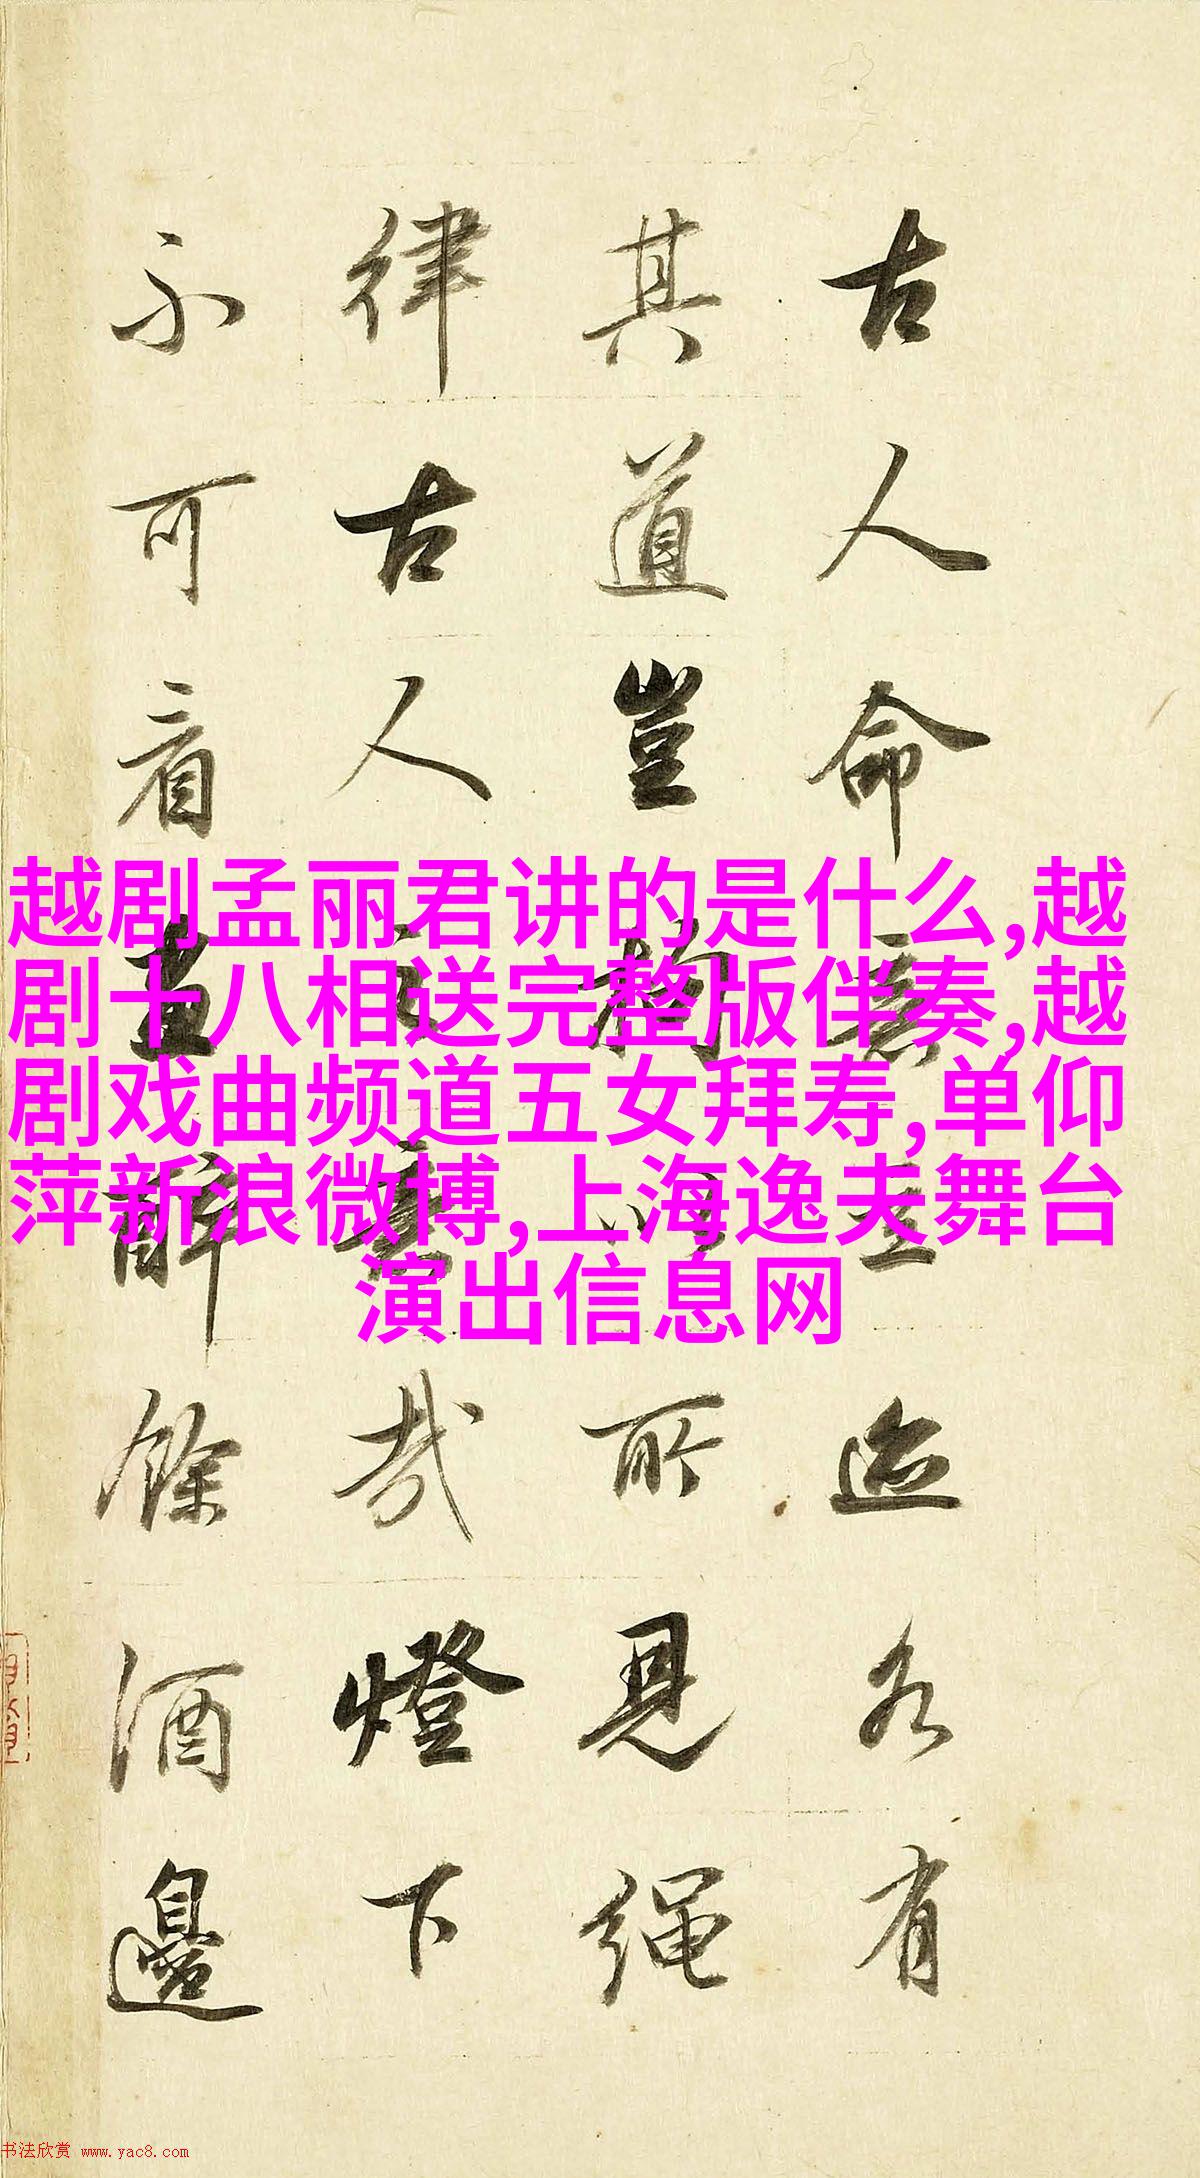 古人命意立迹各有
其道豈拘以所見繩
律古人之意哉燈下
不可看畫醉餘酒邊
越剧孟丽君讲的是什么,越
剧十八相送完整版伴奏,越
剧戏曲频道五女拜寿,单仰
萍新浪微博,上海逸夫舞台
演出信息网
书法欣赏 www.yac8.com